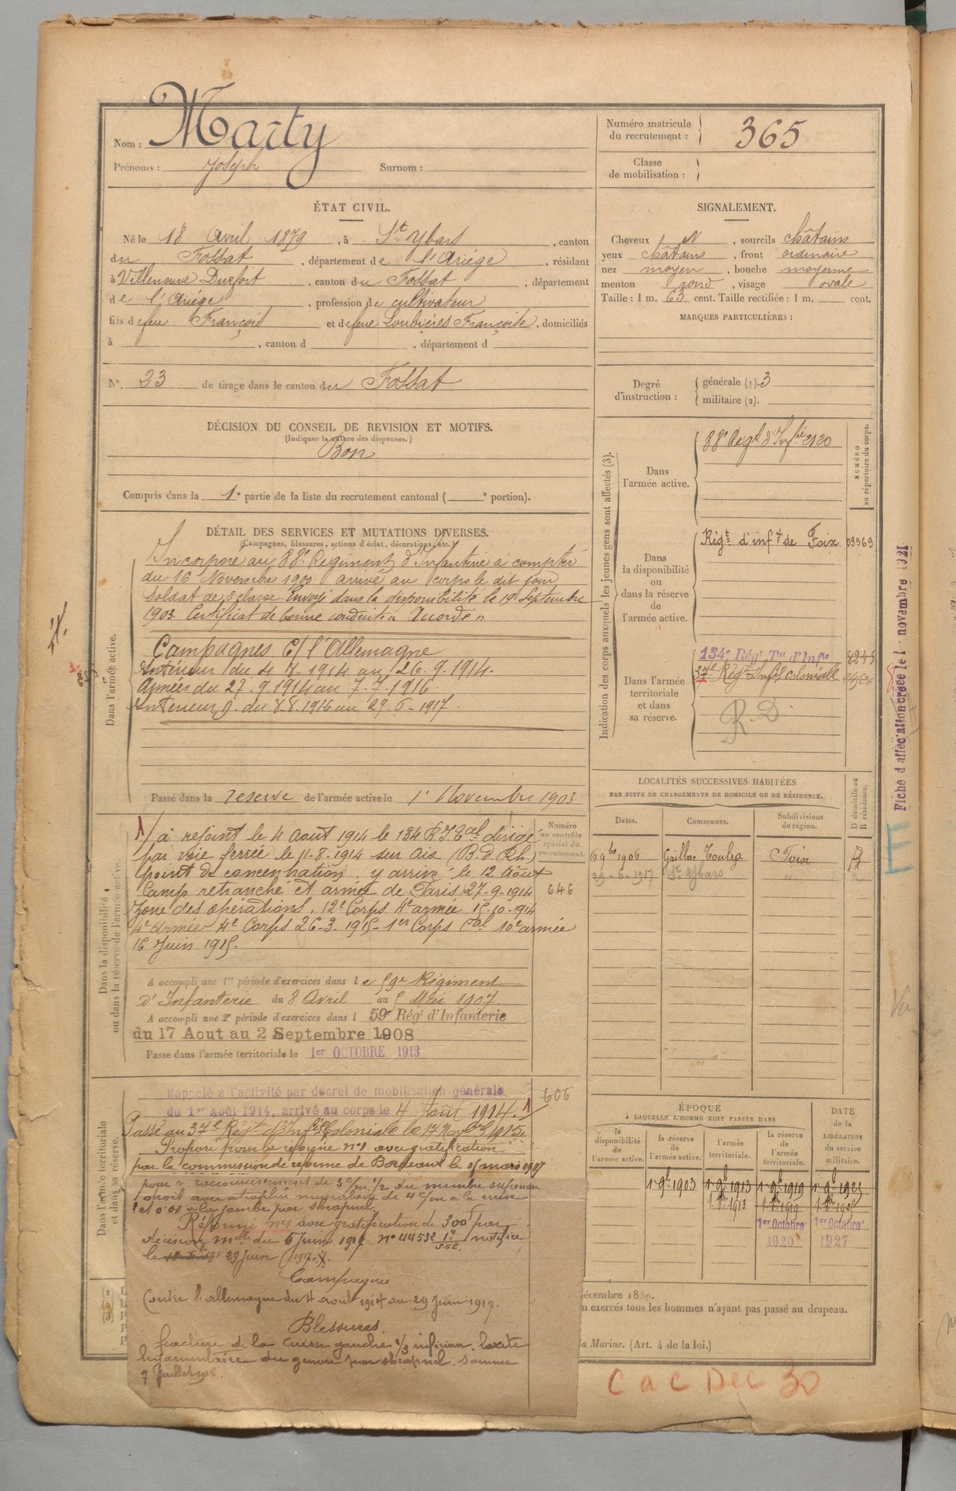 Nom : Marty
Prénoms : Joseph Surnom :
Numéro matricule
du recrutement : 365
Classe
de mobilisation :
ÉTAT CIVIL.
Né le 18 Avril 1879, à St Ybars, canton
du Fossat, département de l'Ariège, résidant
à Villeneuve Durfort, canton du Fossat, département
de l'Ariège, profession de cultivateur
fils de feu François et de feue Loubières Françoise, domiciliés
à , canton d , département d
N° 23 de tirage dans le canton du Fossat
SIGNALEMENT.
Cheveux , sourcils châtains
yeux châtains, front ordinaire
nez moyen, bouche moyenne
menton rond, visage ovale
Taille : 1 m. 63 cent. Taille rectifiée : 1 m. cent.
MARQUES PARTICULIÈRES :
Degré
d'instruction :
générale (1). 3
militaire (2).
DÉCISION DU CONSEIL DE REVISION ET MOTIFS.
(Indiquer la nature des dispenses.)
Bon
Compris dans la 1e partie de la liste du recrutement cantonal ( e portion).
DÉTAIL DES SERVICES ET MUTATIONS DIVERSES.
(Campagnes, blessures, actions d'éclat, décorations, etc.)
Dans l'armée active.
Incorporé au 88e Régiment d'Infanterie à compter
du 16 Novembre 1900 arrivé au corps le dit jour
Soldat de 2e classe. Envoyé dans la disponibilité le 19 Septembre
1903. Certificat de bonne conduite " Accordé "
Campagnes C/ l'Allemagne
Intérieur du 4.8.1914 au 26.9.1914.
Armées du 27.9.1914 au 7.7.1916
Intérieur g. du 8.8.1916 au 29.6.1917.
Passé dans la réserve de l'armée active le 1r Novembre 1903
Indication des corps auxquels les jeunes gens sont affectés (3).
NUMÉRO
au répertoire du corps.
Dans
l'armée active.
88e Régt d'Infrie 2120
Dans
la disponibilité
ou
dans la réserve
de
l'armée active.
Régt d'infie de Foix 03969
Dans l'armée
territoriale
et dans
sa réserve.
134e Rég. Tal d'Infie
37e Régt Infie Coloniale
R.D.
Fiche d'affectation créée le 1 novembre 1921
LOCALITÉS SUCCESSIVES HABITÉES
PAR SUITE DE CHANGEMENTS DE DOMICILE OU DE RÉSIDENCE.
Dates. Communes. Subdivisions
de région. D domicile ou
R résidence.
6 9bre 1906 Gaillac Toulza Foix
29-6-1917 St Ybars "
Dans la disponibilité
ou dans la réserve de l'armée active.
Numéro
au contrôle
spécial du
recrutement.
646
1/ a rejoint le 4 Aout 1914 le 134 R.I.Tal dirigé
par voie ferrée le 11-8-1914 sur Aix (B.d.Rh.)
(point de concentration), y arrive le 12 Août
Camp retranché et armée de Paris 27-9-1914
Zone des opérations. 12e Corps 4e armée 15-10-1914
4e Armée 4e Corps 26-3-1915- 1er Corps Cal 10e armée
16 Juin 1915-
A accompli une 1re période d'exercices dans le 59e Régiment
d'Infanterie du 8 Avril au 5 Mai 1907
A accompli une 2e période d'exercices dans l 59e Rég' d'Infanterie
du 17 Aout au 2 Septembre 1908
Passé dans l'armée territoriale le 1er OCTOBRE 1913
Dans l'armée territoriale
et dans sa réserve.
606
Rappelé à l'activité par décret de mobilisation générale
du 1er août 1914, arrivé au corps le 4 Août 1914. 1/
Passé au 37e Régt d'Infie Coloniale le 17 Novbre 1915.
Proposé pour la réforme n°1 avec gratification
par la commission de réforme de Bordeaux le 15 mars 1917
pour : raccourcissement de 3c/m 1/2 du membre supérieur
droit avec atrophie musculaire de 4c/m à la cuisse
et 0.01 à la jambe par shrapnel.
Réformé n°1 avec gratification de 300f par
décision Mlle du 5 Juin 1917 n° 44532 notifiée
le 29 Juin 1917.
Campagnes
Contre l'allemagne du 4 aout 1914 au 29 Juin 1917.
Blessures
fracture de la cuisse gauche 1/3 inférieur, laxité
ligamentaire du genou par shrapnel Somme
7 Juillet 1916.
ÉPOQUE
À LAQUELLE L'HOMME DOIT PASSER DANS
la
disponibilité
de
l'armée active.
la réserve
de
l'armée active.
l'armée
territoriale.
la réserve
de
l'armée
territoriale.
DATE
de la
LIBÉRATION
du service
militaire.
1r 9bre 1903 1r 9bre 1913 1r 9bre 1919 1r 9bre 1925
1er Octobre 1er Octobre
1920 1927
décembre 1889.
n exercés tous les hommes n'ayant pas passé au drapeau.
la Marine. (Art. 4 de la loi.)
C a C Dec 30